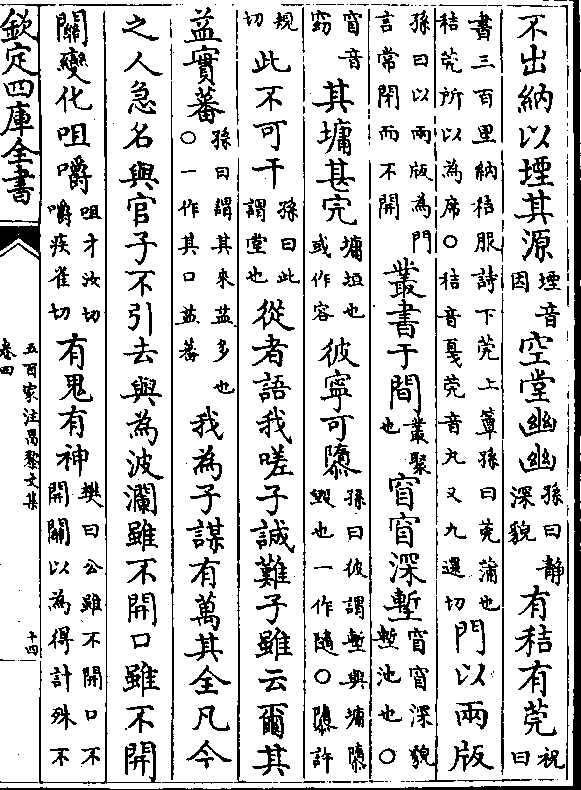 不出納以堙其源堙音因空堂幽幽孫曰靜深貌有秸有莞祝曰
書三百里納秸服詩下莞上簟孫曰莞蒲也秸莞所以為席○秸音戛莞音丸又九選切門以兩版
孫曰以兩版為門言常閉而不開叢書于間叢聚也窅窅深塹窅窅深貌塹池也○
窅音窈其墉甚完墉垣也或作容彼寧可隳孫曰彼謂塹與墉隳毀也一作隨○隳許
規切此不可干孫曰此謂堂也從者語我嗟子誠難子雖云爾其
益實蕃孫曰謂其來益多也○一作其口益蕃我為子謀有萬其全凡今
之人急名與官子不引去與為波瀾雖不開口雖不開
關變化咀嚼咀才汝切嚼疾雀切有鬼有神樊曰公雖不開口不開關以為得計殊不
欽定四庫全書
五百家注昌黎文集
卷四
十四